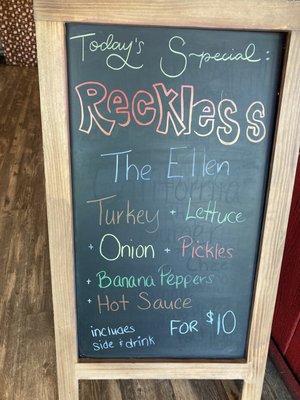 Today's Special:
Reckless
The Ellen
Turkey + Lettuce
+ Onion + Pickles
+ Banana Peppers
+ Hot Sauce
includes
side & drink
FOR $10